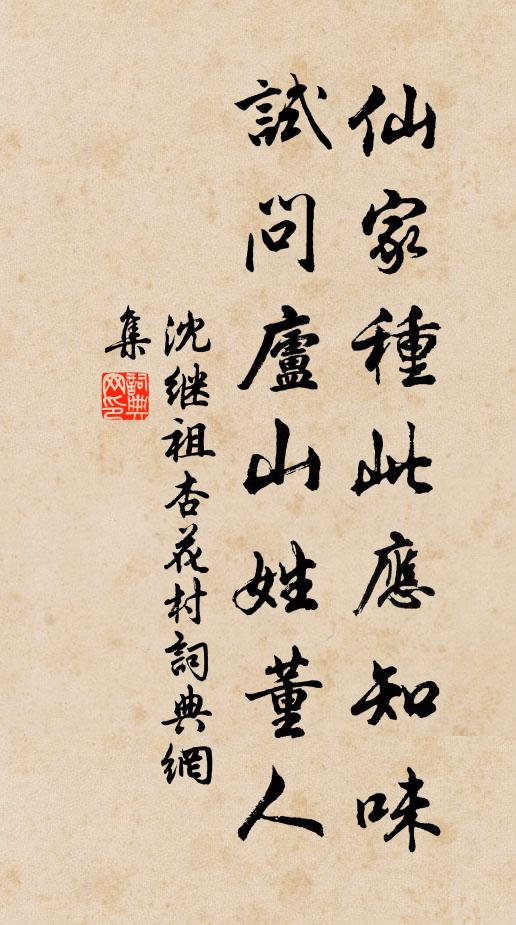 仙家種此應知味
試問廬山姓董人
沈继祖杏花村詞典網
集
詞典
网印